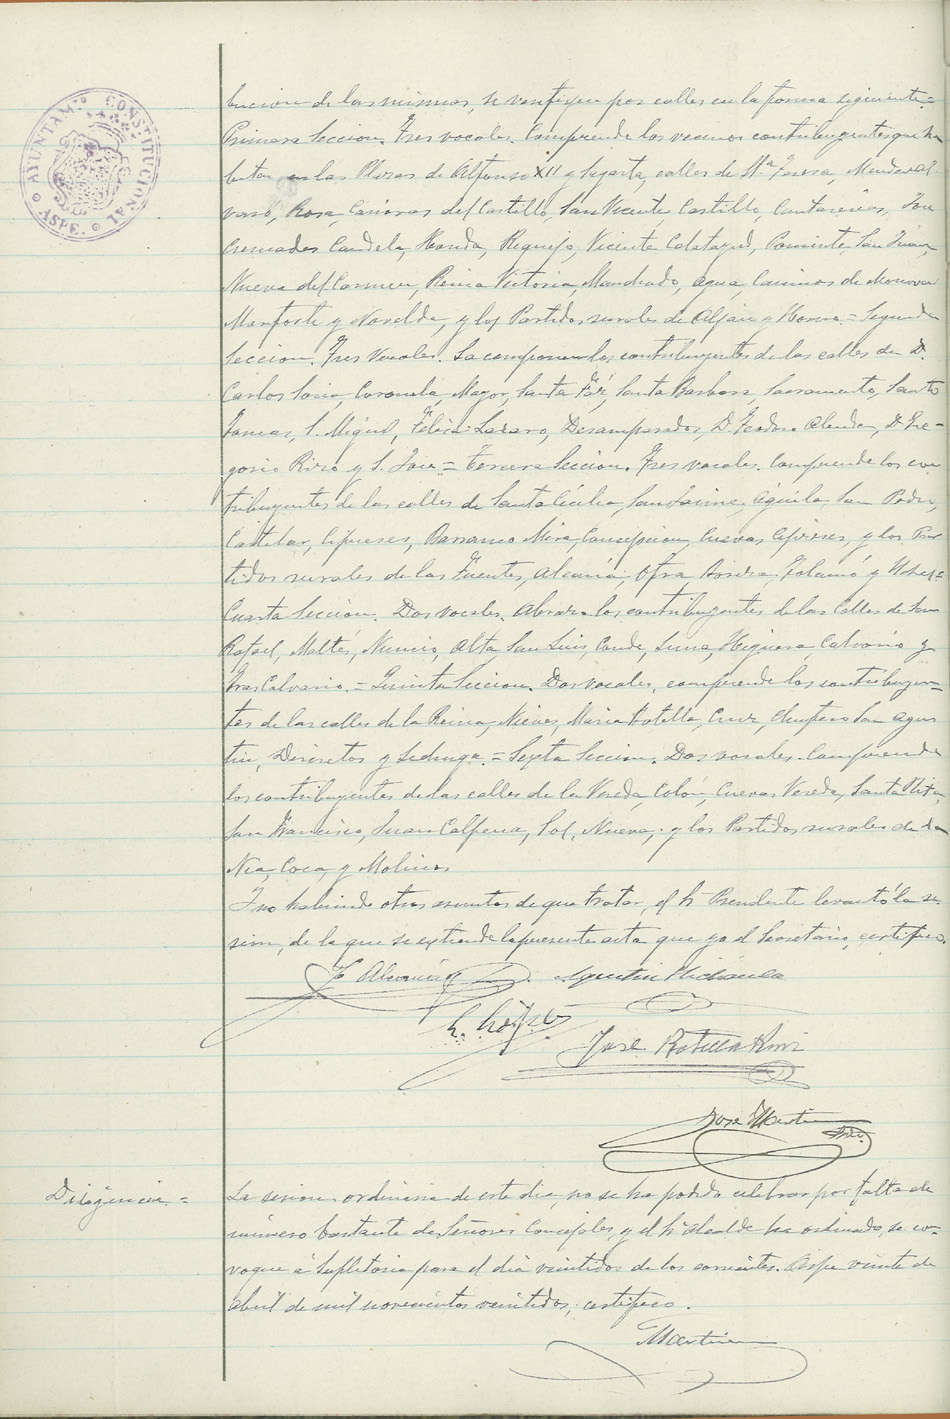 AYUNTAM.º CONSTITUCIONAL
ASPE.
bucion de las mismas, se verifiquen por calles en la forma siguiente=
Primera Seccion. Tres vocales. Comprende los vecinos contribuyentes que ha
bitan en las Plazas de Alfonso XII y Sagasta, calles de Mª Teresa, Mendez Al
varo, Rosa, Canovas del Castillo, San Vicente, Castillo, Cantarerias, Jose
Cremades Candela, Honda, Requejo, Vicente Calatayud, Poniente, San Juan,
Nueva del Carmen, Reina Victoria, Manchado, Agua, Caminos de Monovar
Monforte y Novelda, y los Partidos rurales de Aljau y Horna.= Segunda
Seccion. Tres Vocales. La componen los contribuyentes de las calles de D.
Carlos Soria, Coronela, Mayor, Santa Fé, Santa Barbara, Sacramento, Santo
Tomas, S. Miguel, Felicia Lazaro, Desamparados, D. Teodoro Alenda, D. Gre-
gorio Rizo y S. Jose= Tercera Seccion. Tres vocales. Comprende los con
tribuyentes de las calles de Santa Cecilia, San Jaime, Aguila, San Pedro,
Castelar, Cipreses, Barranco Mira, Concepcion, Cuevas Cipreses, y los Par
tidos rurales de las Fuentes, Alcaná, Ofra, Tolomó y Uchel=
Cuarta Seccion. Dos vocales. Abraza los contribuyentes de las Calles de San
Rafael, Maltés, Nuncio, Alta, San Luis, Conde, Luna, Higuera, Calvario y
Tras Calvario.= Quinta Seccion. Dos vocales, comprende los contribuyen=
tes de las calles de la Reina, Nieves, Maria Botella, Cruz, San Agus
tin, Desiertos y .= Sexta Seccion. Dos vocales. Comprende
los contribuyentes de las calles de la Vereda, Colón, Cuevas Vereda, Santa Rita,
San Francisco, Juan Calpena, Sol, Nueva, y los Partidos rurales de la
Nia, Coca, y Molinos.
Y no habiendo otros asuntos de que tratar, el Sr Presidente levantó la se-
sion, de la que se extiende la presente acta que yo el Secretario, certifico.
Jose Botella
Jose Martinez
Srio.
Diligencia=
La sesion ordinaria de este dia, no se ha podido celebrar por falta de
número bastante de Señores Concejales, y el Sr Alcalde ha ordinado, se con-
voque á Supletoria para el dia veintidos de los corrientes. Aspe veinte de
Abril de mil novecientos veintidos, certifico.
Martinez